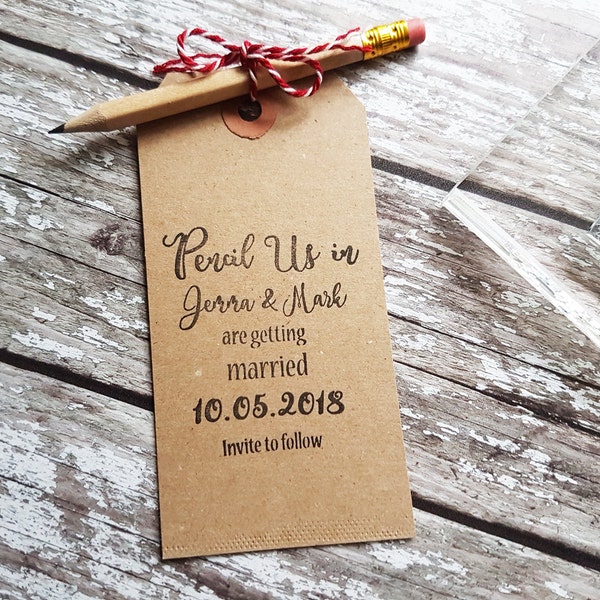 Pencil Us in
Jerra & Mark
are getting
married
10.05.2018
Invite to follow